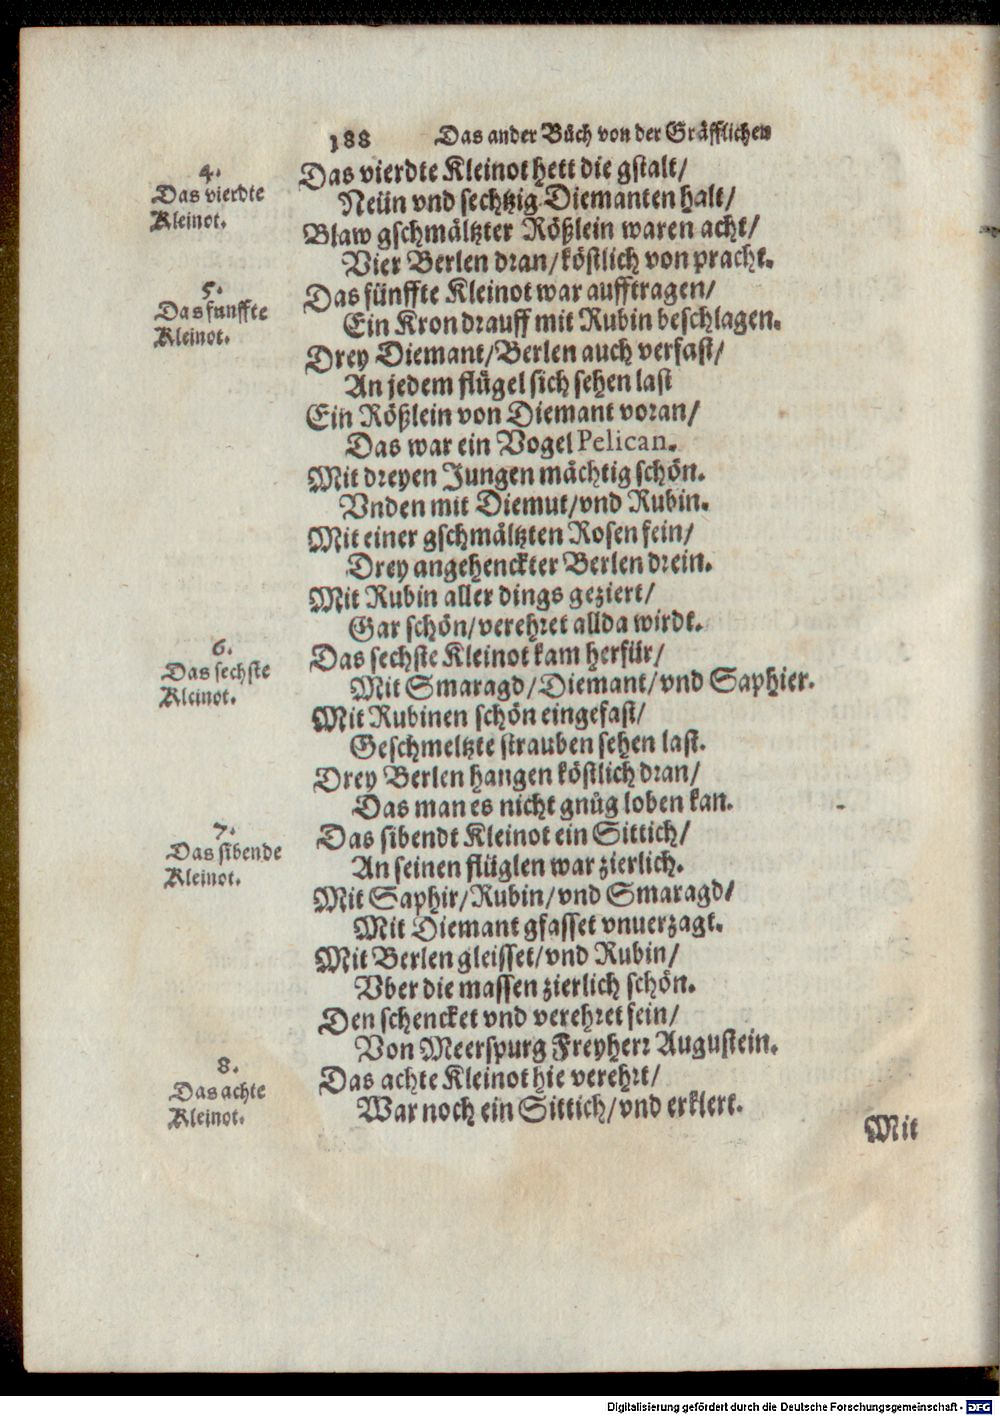 188 Das ander Bůch von der Gräfflichen
4.
Das vierdte
Kleinot.
Das vierdte Kleinot hett die gstalt/
Neün vnd sechtzig Diemanten halt/
Blaw gschmältzter Rößlein waren acht/
Vier Berlen dran/köstlich von pracht.
5.
Das funffte
Kleinot.
Das fünffte Kleinot war aufftragen/
Ein Kron drauff mit Rubin beschlagen.
Drey Diemant/Berlen auch verfast/
An jedem flügel sich sehen last
Ein Rößlein von Diemant voran/
Das war ein Vogel Pelican.
Mit dreyen Jungen mächtig schön.
Vnden mit Diemut/vnd Rubin.
Mit einer gschmältzten Rosen fein/
Drey angehenckter Berlen drein.
Mit Rubin aller dings geziert/
Gar schön/verehret allda wirdt.
6.
Das sechste
Kleinot.
Das sechste Kleinot kam herfür/
Mit Smaragd/Diemant/vnd Saphier.
Mit Rubinen schön eingefast/
Geschmeltzte strauben sehen last.
Drey Berlen hangen köstlich dran/
Das man es nicht gnůg loben kan.
7.
Das sibende
Kleinot.
Das sibendt Kleinot ein Sittich/
An seinen flüglen war zierlich.
Mit Saphir/Rubin/vnd Smaragd/
Mit Diemant gfasset vnuerzagt.
Mit Berlen gleisset/vnd Rubin/
Vber die massen zierlich schön.
Den schencket vnd verehret fein/
Von Meerspurg Freyherr Augustein.
8.
Das achte
Kleinot.
Das achte Kleinot hie verehrt/
War noch ein Sittich/vnd erklert.
Mit
Digitalisierung gefördert durch die Deutsche Forschungsgemeinschaft - DFG